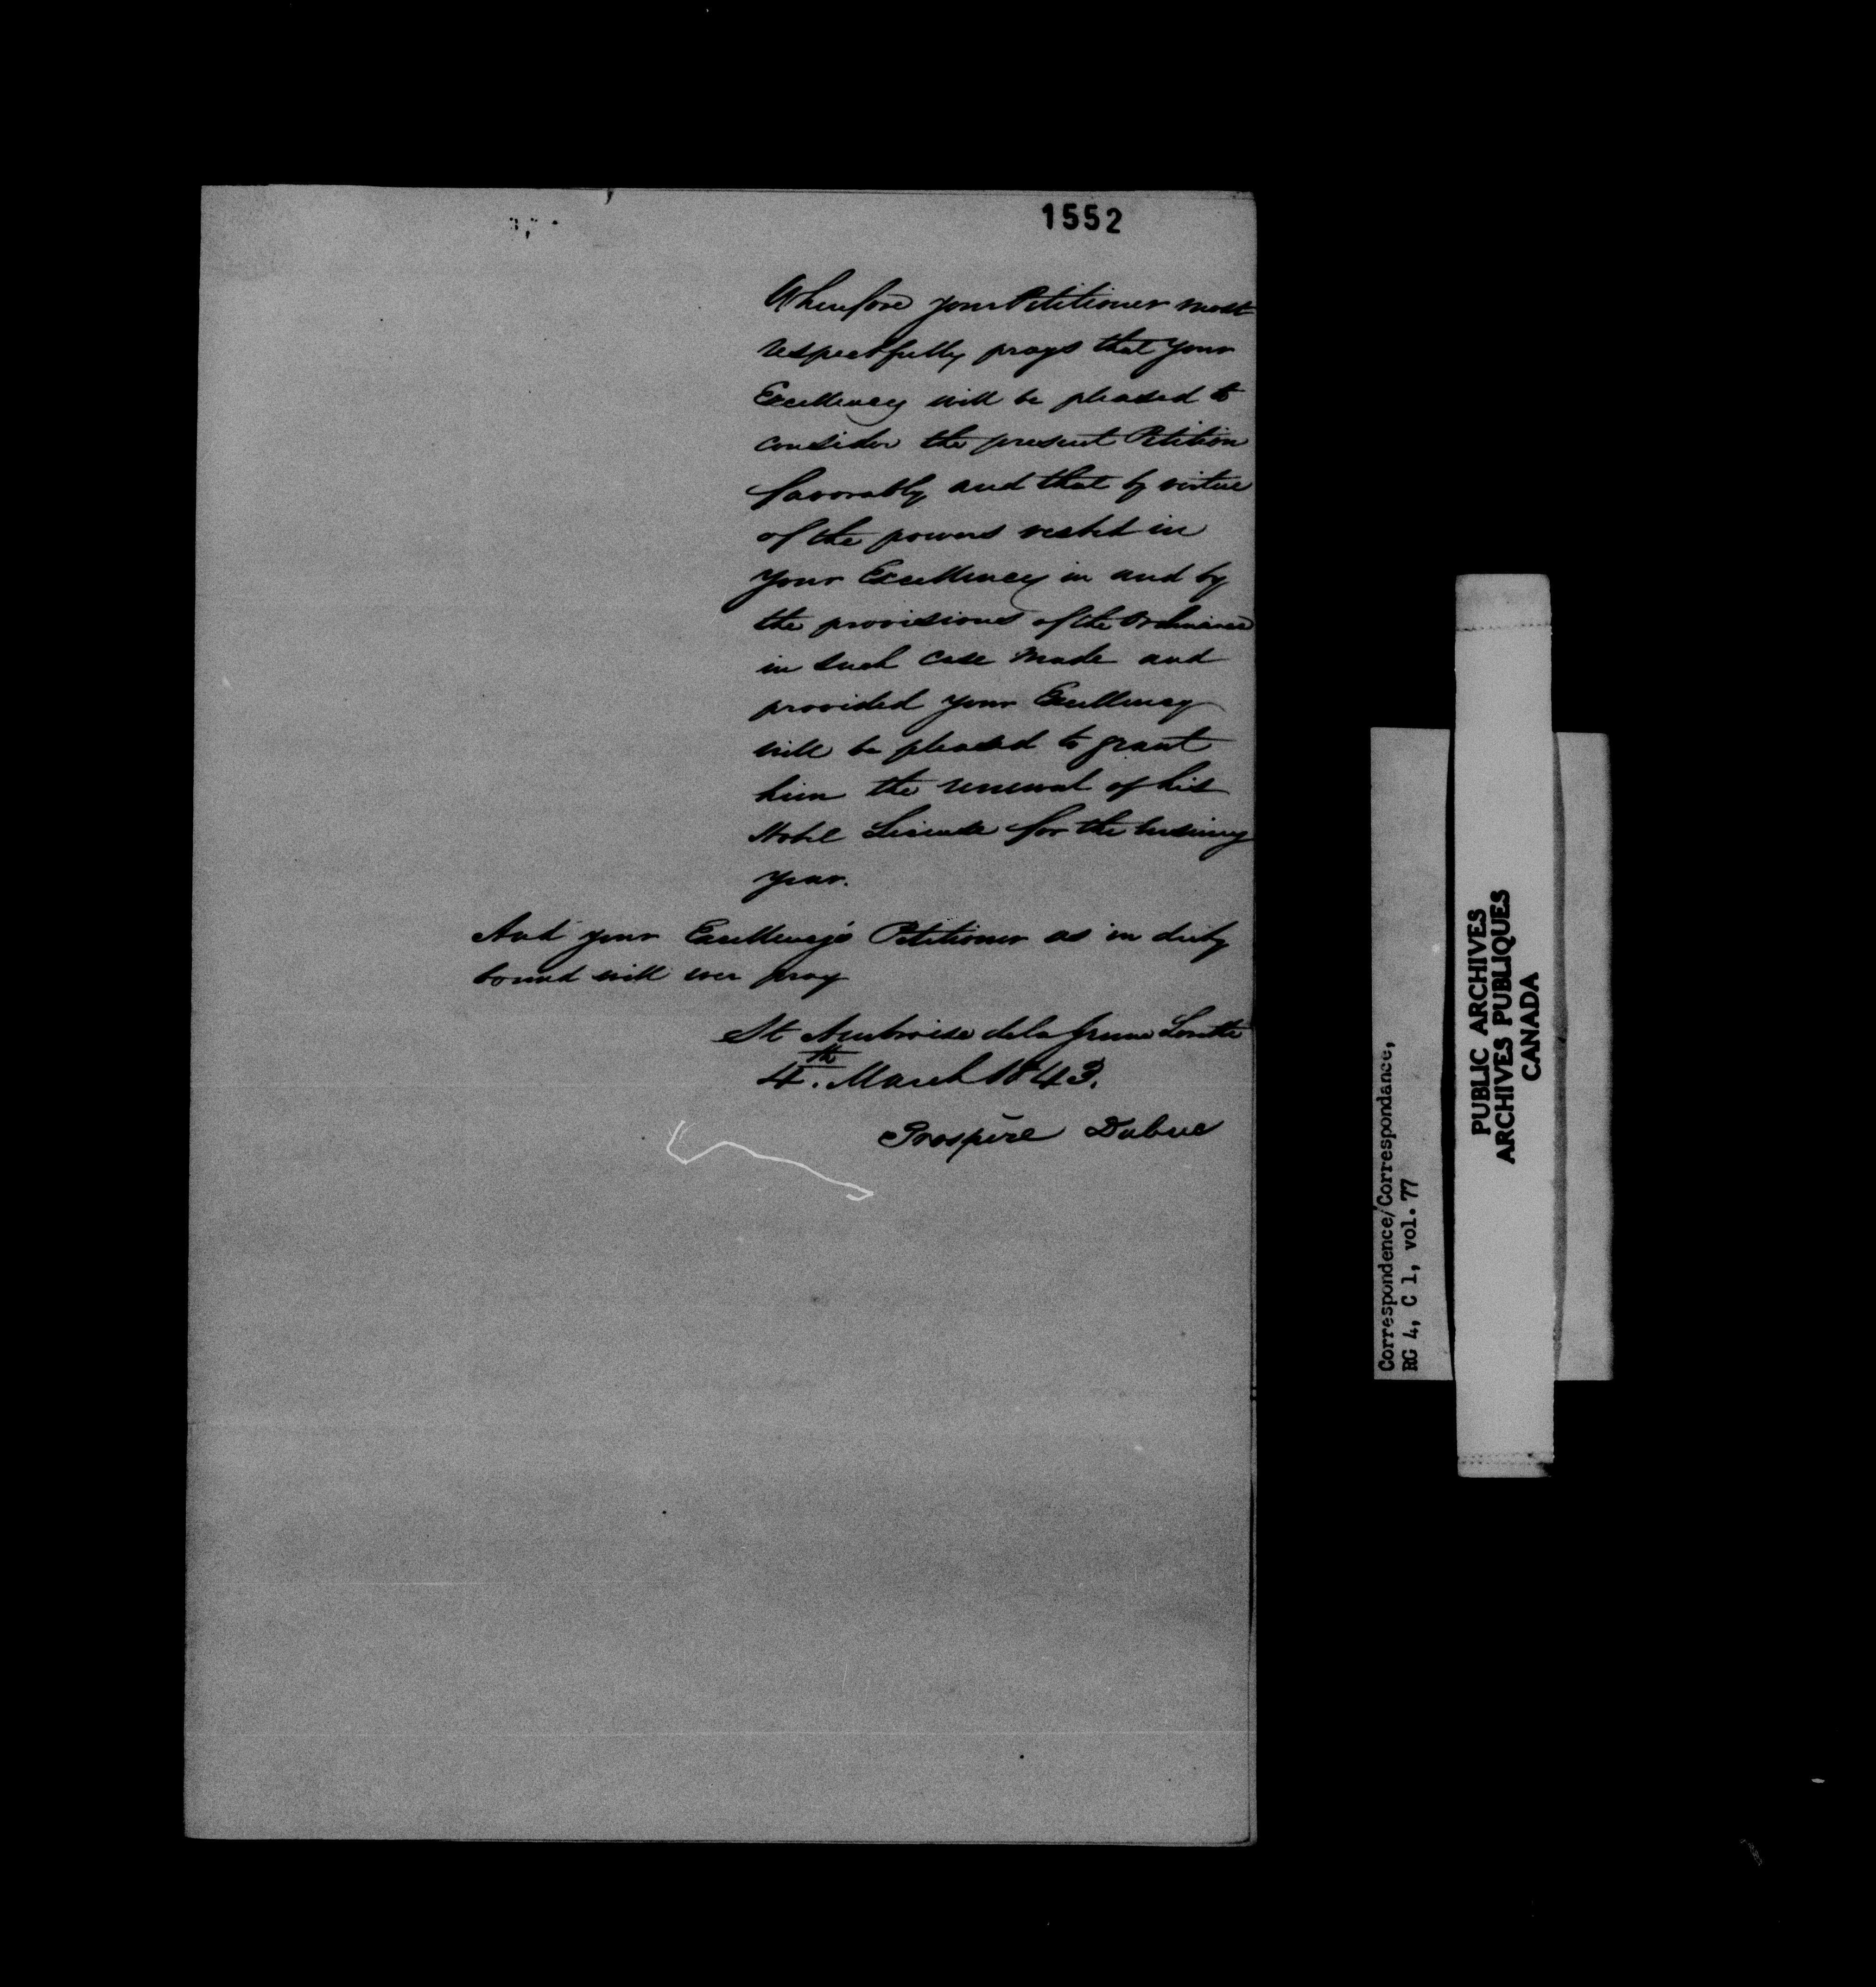 1552
Wherefore your Petitioner most
respectfully prays that your
Excellency will be pleased to
consider the present Petition
favorably and that by virtue
of the powers vested in
your Excellency in and by
the provisions of the Ordinance
in such case made and
provided your Excellency
will be pleased to grant
him the renewal of his
Hotel License for the
year.
And your Excellency's Petitioner as in duty
bound will ever pray
St Ambroise de la Jeune Lorette
4th. March 1843.
Prospère Dubuc
Correspondence/Correspondance,
RG 4, C 1, vol. 77
PUBLIC ARCHIVES
ARCHIVES PUBLIQUES
CANADA